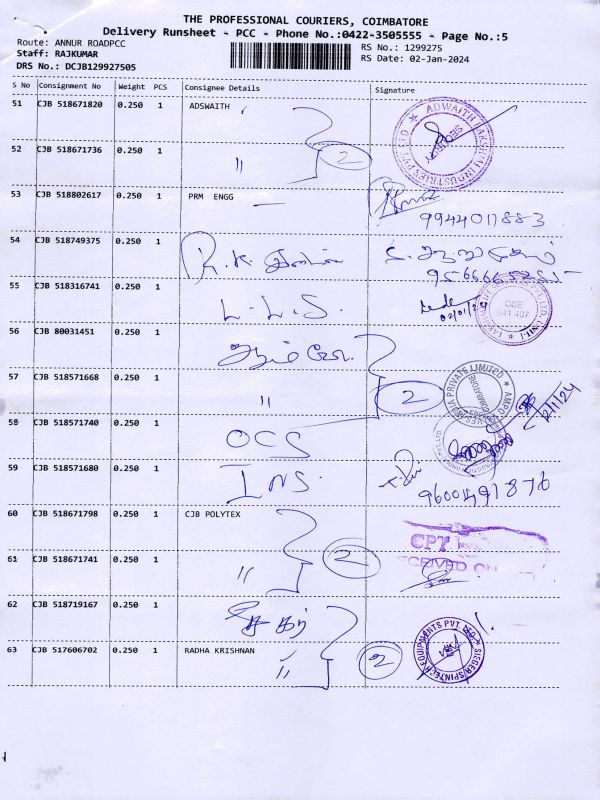 THE PROFESSIONAL COURIERS, COIMBATORE
Delivery Runsheet - PCC - Phone No.:0422-3505555 - Page No.:5
Route: ANNUR ROADPCC
RS No.: 1299275
Staff: RAJKUMAR
RS Date: 02-Jan-2024
DRS No.: DCJB129927505
S No Consignment No Weight PCS Consignee Details Signature
51 CJB 518671820 0.250 1 ADSWAITH
52 CJB 518671736 0.250 1 〃 2
53 CJB 518802617 0.250 1 PRM ENGG
9944017883
54 CJB 518749375 0.250 1 R.K.
55 CJB 518316741 0.250 1 L.L.S. 02/01/24
CBE
641 407
56 CJB 80031451 0.250 1
57 CJB 518571668 0.250 1 〃 2
2/1/24
58 CJB 518571740 0.250 1 OCS
59 CJB 518571680 0.250 1 INS.
9600491876
60 CJB 518671798 0.250 1 CJB POLYTEX
CPT
61 CJB 518671741 0.250 1 〃 2
62 CJB 518719167 0.250 1
63 CJB 517606702 0.250 1 RADHA KRISHNAN
〃 2